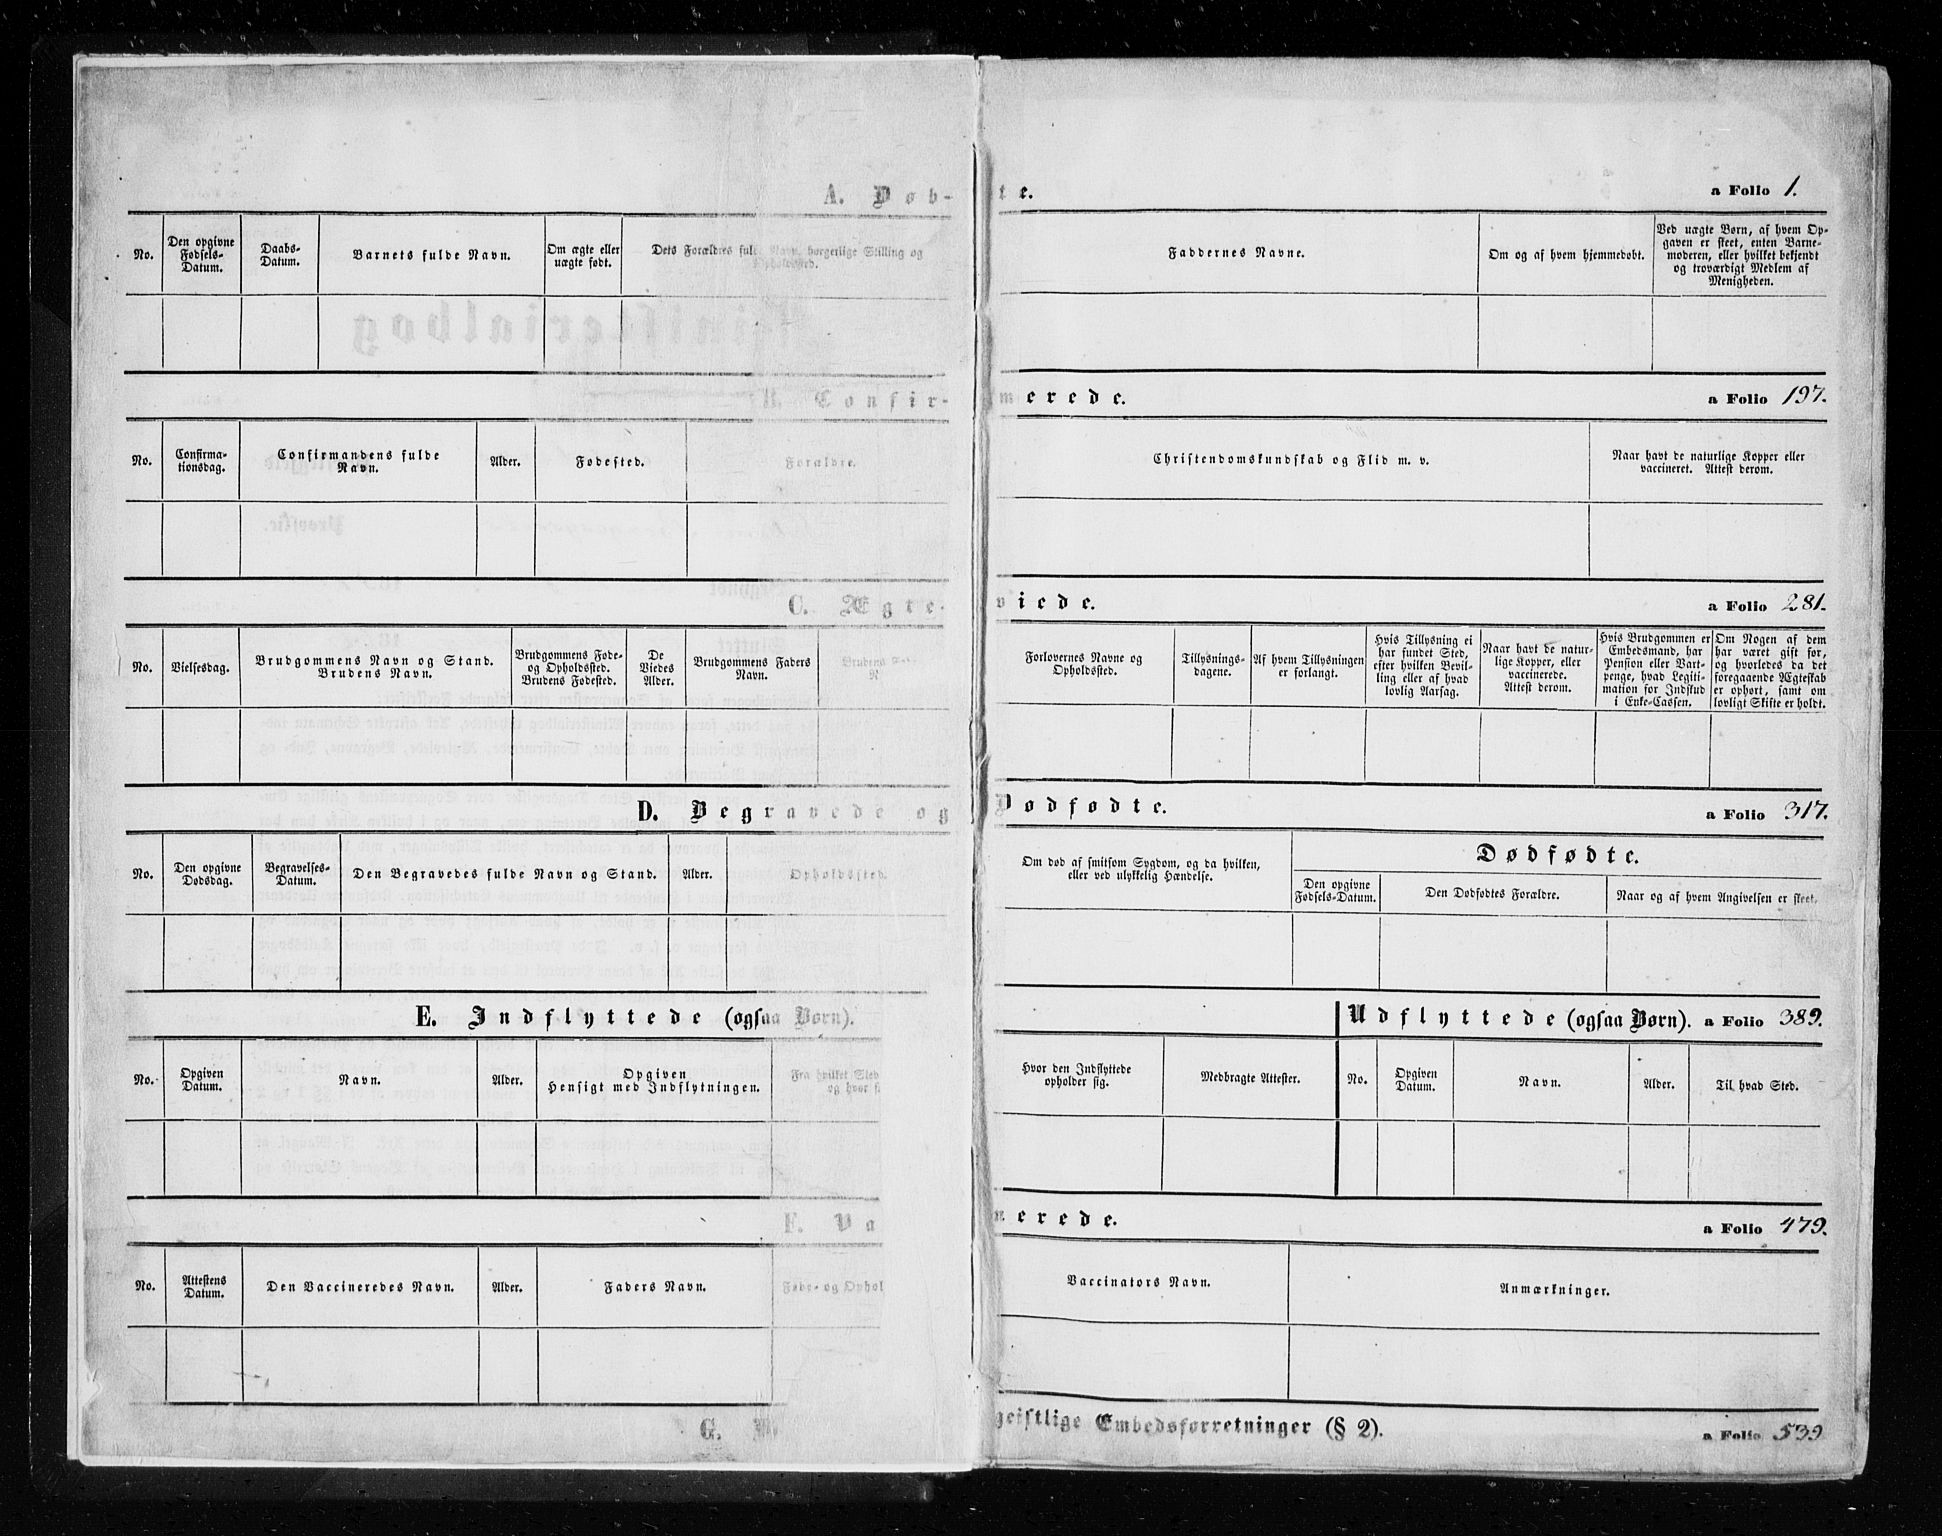 A. Døbte. a Folio 1.
No.
Den opgivne
Fødsels-
Datum.
Daabs-
Datum.
Barnets fulde Navn.
Om ægte eller
uægte født.
Dets Forældres fulde Navn, borgerlige Stilling og
Opholdssted.
Faddernes Navne.
Om og af hvem hjemmedøbt.
Ved uægte Børn, af hvem Op-
gaven er skeet, enten Barne-
moderen, eller hvilket bekjendt
og troværdigt Medlem af
Menigheden.
B. Confir- merede. a Folio 197.
No.
Confirma-
tionsdag.
Confirmandens fulde
Navn.
Alder.
Fødested.
Forældre.
Christendomskundskab og Flid m. v.
Naar havt de naturlige Kopper eller
vaccineret. Attest derom.
C. Ægte- viede. a Folio 281.
No.
Vielsesdag.
Brudgommens Navn og Stand.
Brudens Navn.
Brudgommens Føde-
og Opholdssted.
Brudens Fødested.
De
Viedes
Alder.
Brudgommens Faders
Navn.
Brudens
Forlovernes Navne og
Opholdssted.
Tillysnings-
dagene.
Af hvem Tillysningen
er forlangt.
Hvis Tillysning ei
har fundet Sted,
efter hvilken Bevil-
ling eller af hvad
lovlig Aarsag.
Naar havt de natur-
lige Kopper, eller
vaccinerede.
Attest derom.
Hvis Brudgommen er
Embedsmand, har
Pension eller Vart-
penge, hvad Legiti-
mation for Indskud
i Enke-Cassen.
Om Nogen af dem
har været gift før,
og hvorledes da det
foregaaende Ægteskab
er ophørt, samt om
lovligt Skifte er holdt.
D. Begravede og Dødfødte. a Folio 317.
No.
Den opgivne
Dødsdag.
Begravelses-
Datum.
Den Begravedes fulde Navn og Stand.
Alder.
Opholdssted.
Om død af smitsom Sygdom, og da hvilken,
eller ved ulykkelig Hændelse.
Dødfødte.
Den opgivne
Fødsels-Datum.
Den Dødfødtes Forældre.
Naar og af hvem Angivelsen er skeet.
E. Indflyttede (ogsaa Børn). Udflyttede (ogsaa Børn). a Folio 389.
No.
Opgiven
Datum.
Navn.
Alder.
Opgiven
Hensigt med Indflytningen.
Fra hvilket Sted
og hvor
Hvor den Indflyttede
opholder sig.
Medbragte Attester.
No.
Opgiven
Datum.
Navn.
Alder.
Til hvad Sted.
F. Va nerede. a Folio 479.
No.
Attestens
Datum.
Den Vaccineredes Navn.
Alder.
Faders Navn.
Føde- og Ophol
Vaccinators Navn.
Anmærkninger.
G. geistlige Embedsforretninger (§ 2). a Folio 539